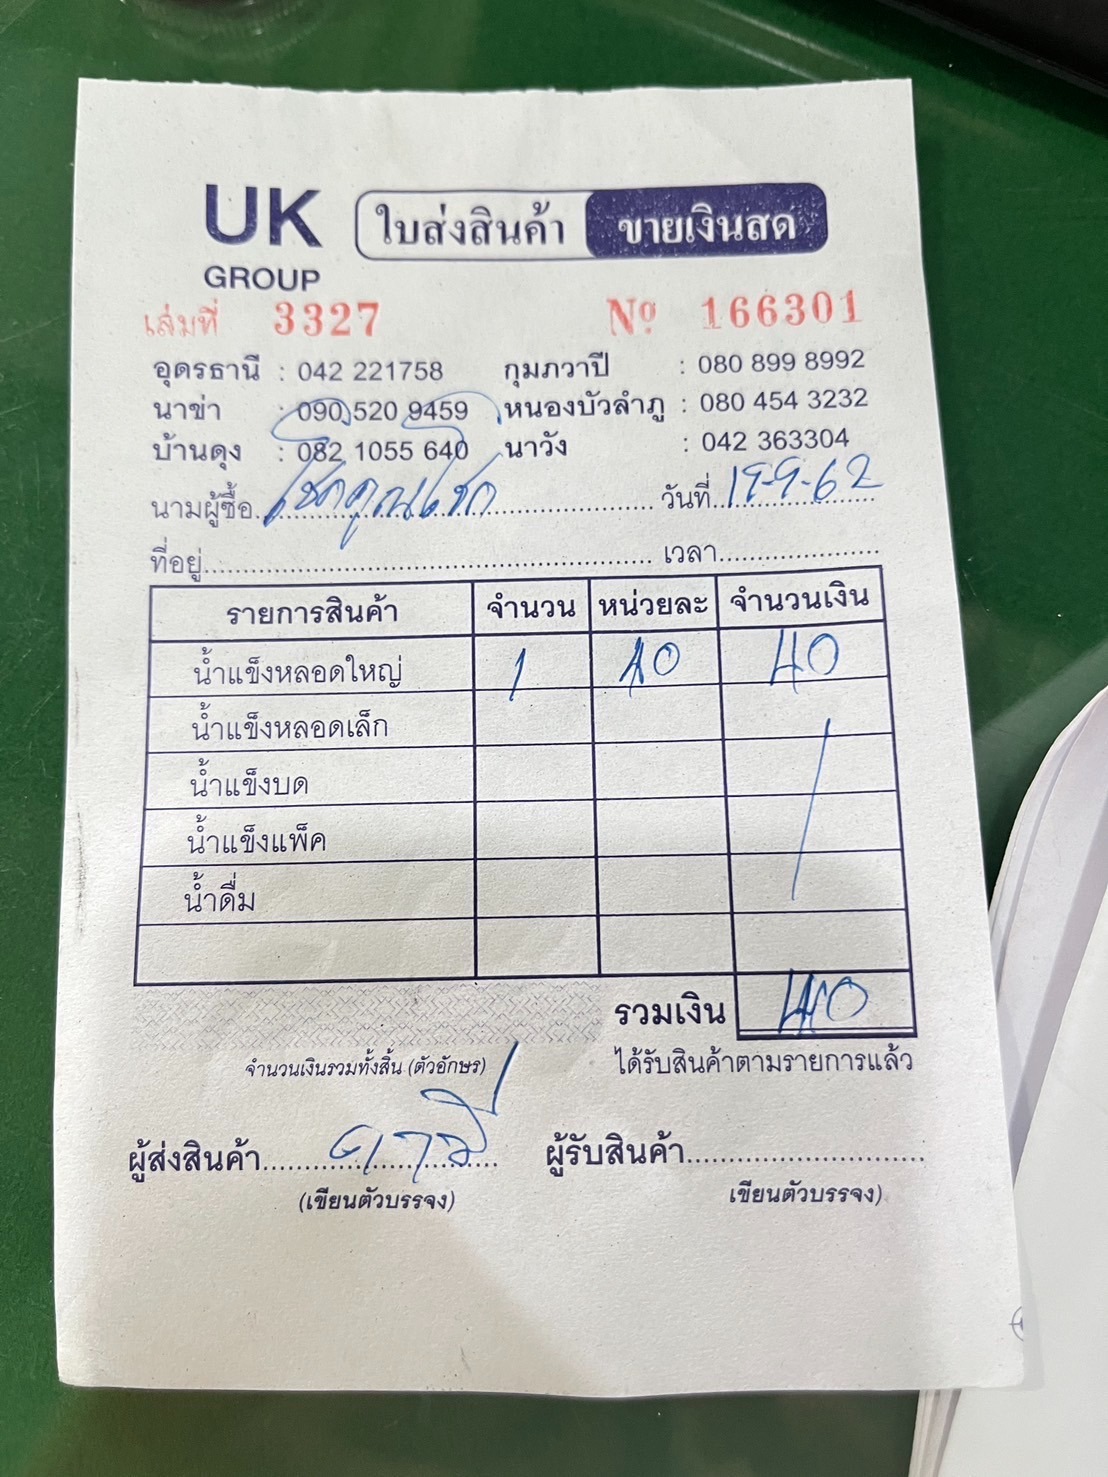 UK
GROUP
ใบส่งสินค้า ขายเงินสด
เล่มที่ 3327 Nº 166301
อุดรธานี : 042 221758 กุมภวาปี : 080 899 8992
นาข่า : 090 520 9459 หนองบัวลำภู : 080 454 3232
บ้านดุง : 082 1055 640 นาวัง : 042 363304
นามผู้ซื้อ โชคคูณโชค วันที่ 19-9-62
ที่อยู่ เวลา
รายการสินค้า จำนวน หน่วยละ จำนวนเงิน
น้ำแข็งหลอดใหญ่ 1 40 40
น้ำแข็งหลอดเล็ก
น้ำแข็งบด
น้ำแข็งแพ็ค
น้ำดื่ม
รวมเงิน 40
จำนวนเงินรวมทั้งสิ้น (ตัวอักษร) ได้รับสินค้าตามรายการแล้ว
ผู้ส่งสินค้า ผู้รับสินค้า
(เขียนตัวบรรจง) เขียนตัวบรรจง)